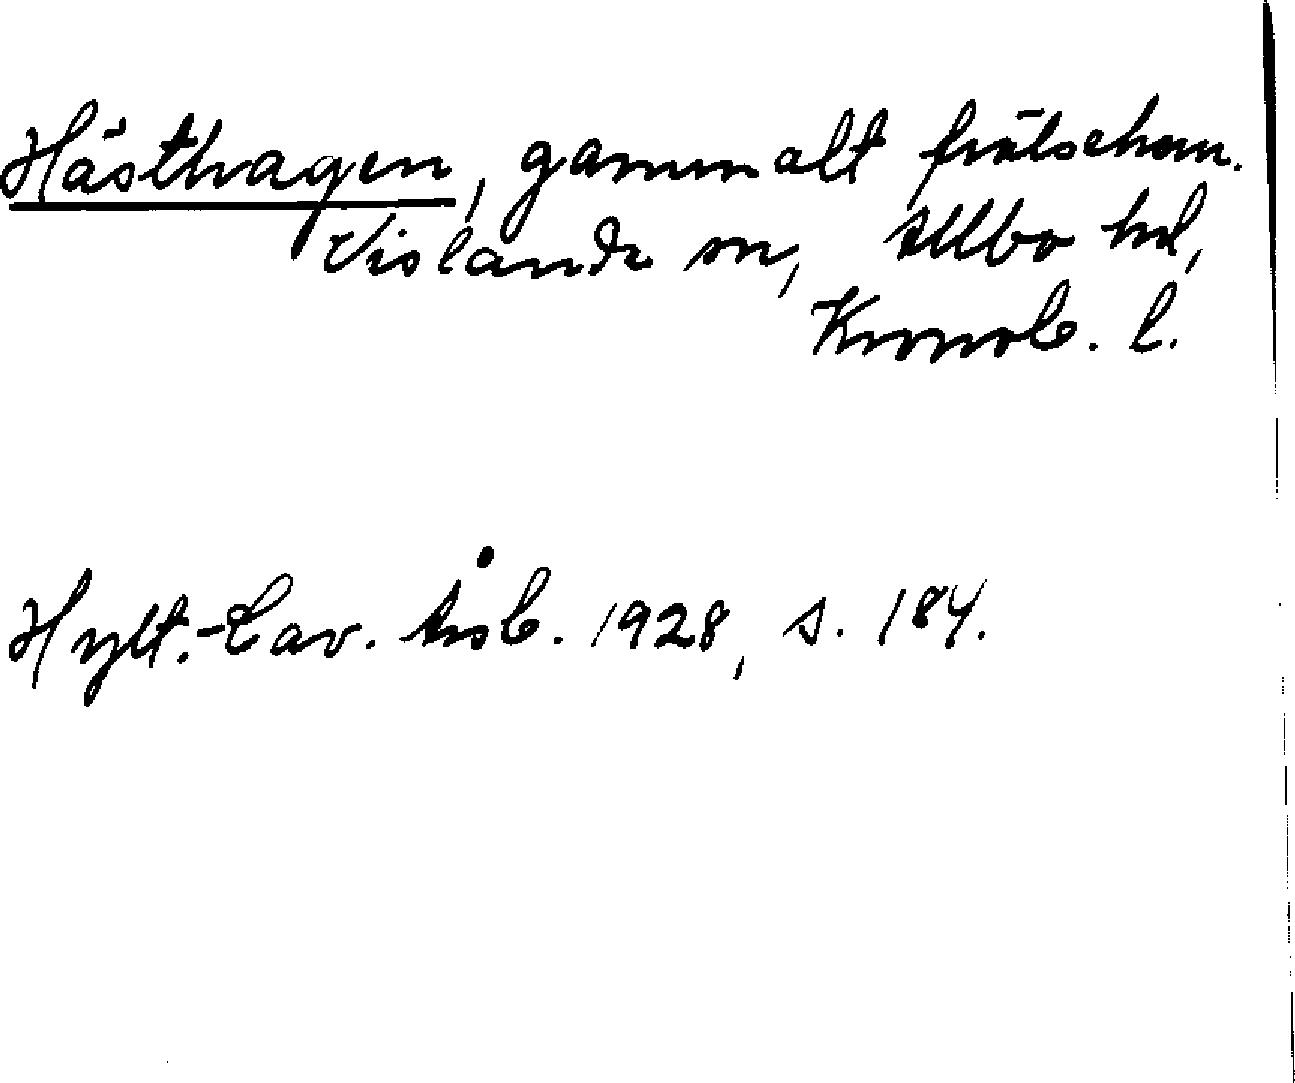 Hästhagen, gammalt frälsehem.
Vislanda sn, Allbo hd,
Kronob. l.
Hylt.-Cav. Årsb. 1928, s. 184.